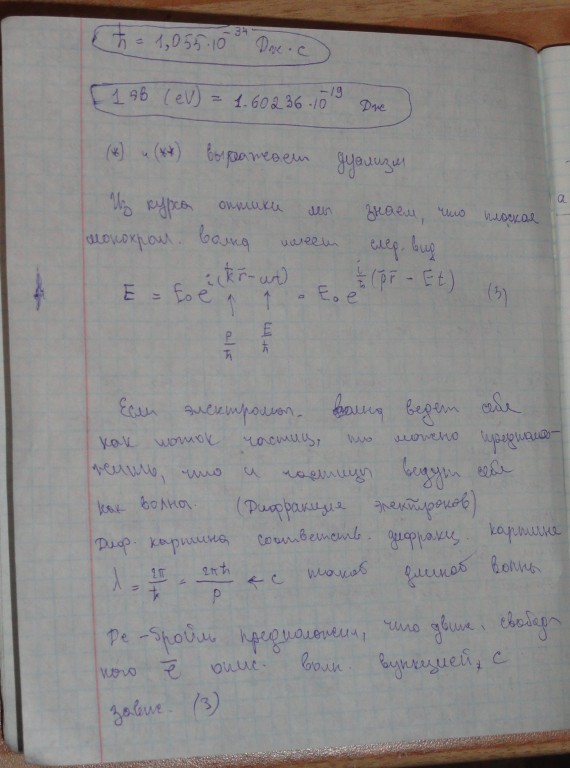 ħ = 1,055·10⁻³⁴ Дж·с
1 эв (eV) = 1.60236·10⁻¹⁹ Дж
(*) и (**) выражает дуализм
Из курса оптики мы знаем, что плоская
монохром. волна имеет след. вид
E = E₀e^{i(k̄r̄-ωt)} = E₀e^{i/ħ(p̄r̄ - Et)} (3)
↑ ↑
p/ħ E/ħ
Если электромаг. волна ведет себя
как поток частиц, то можно предполо-
жить, что и частицы ведут себя
как волны (Дифракция электронов)
Диф. картина соответств. дифракц. картине
λ = 2π/k = 2πħ/p ← с такой длиной волны
Де-Бройль предположил, что движ. свобод
ного e̅ опис. волн. вункцией, с
завис. (3)
а